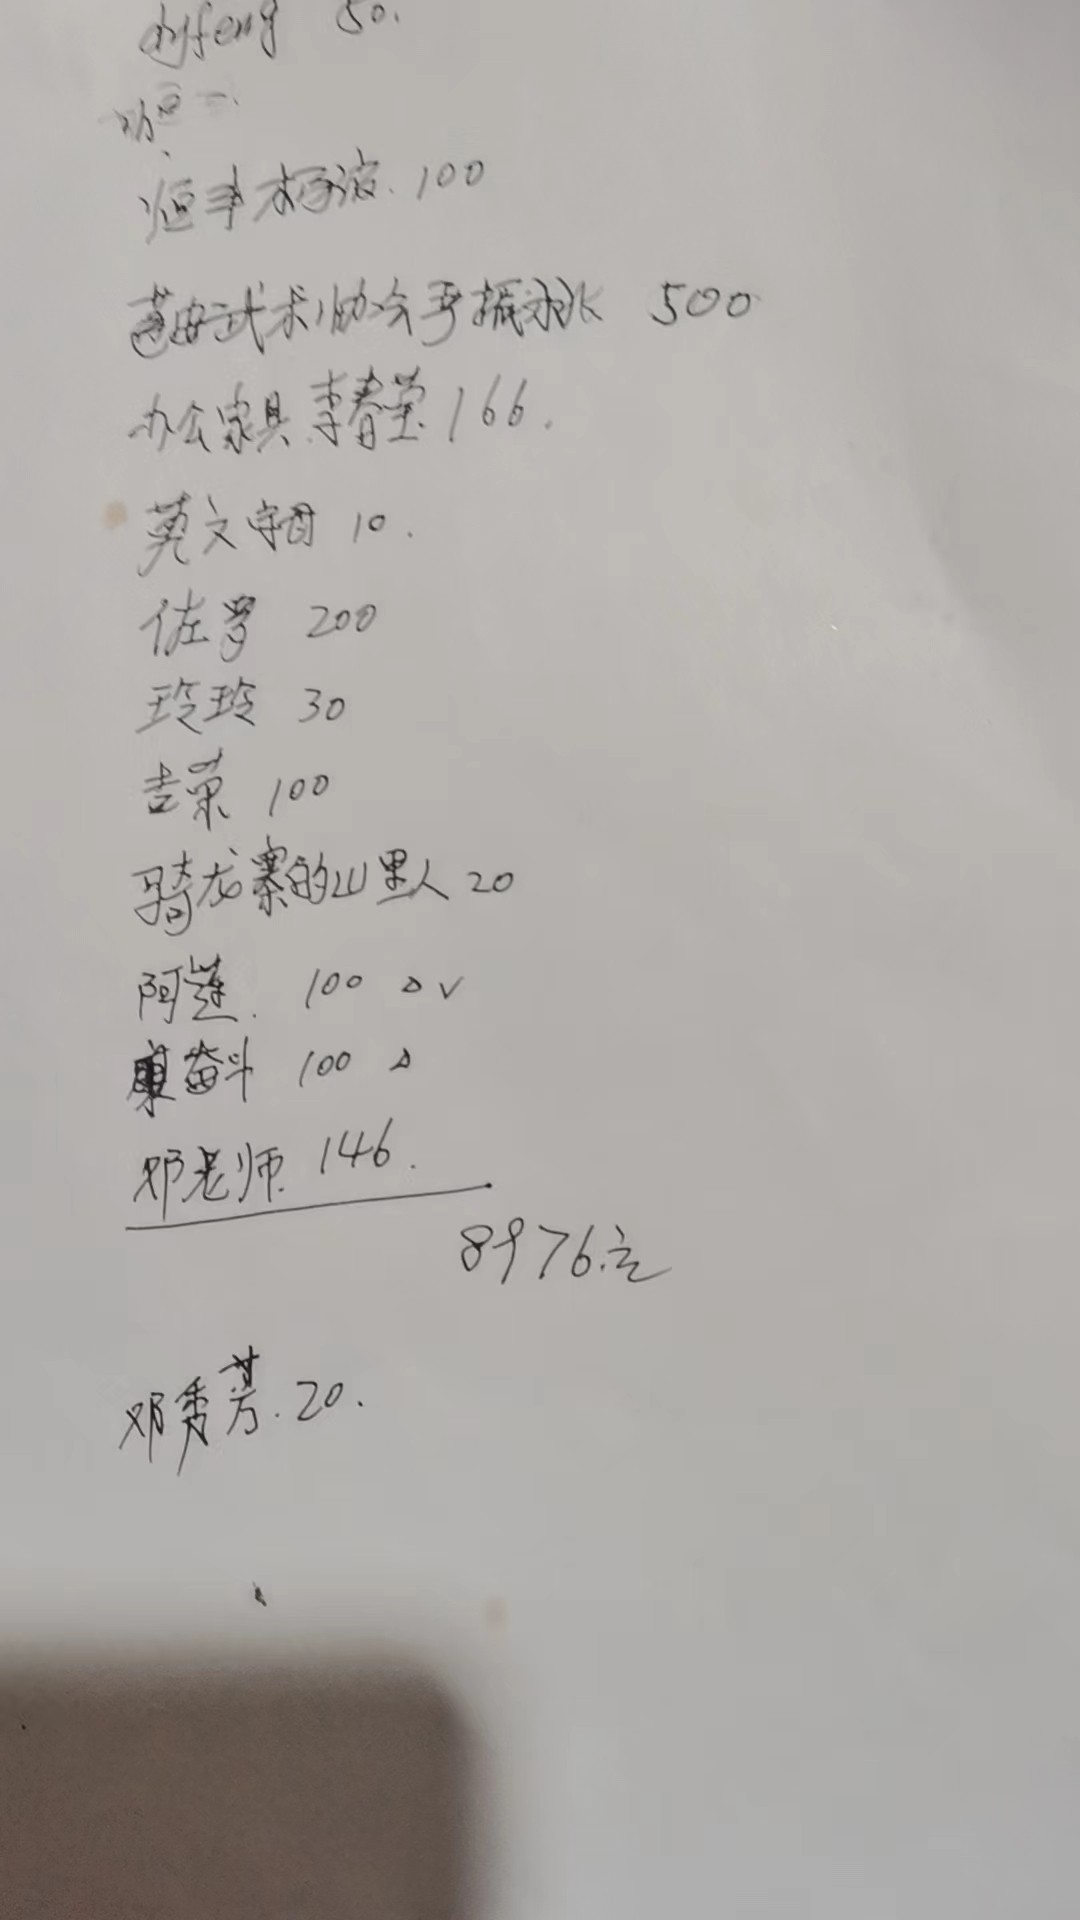 dyfeng 50.
恒丰 100
武术协会 500
办公家具李春莹 166.
英文字母 10.
佐罗 200
玲玲 30
吉荣 100
骑龙寨的山里人 20
阿莲. 100 △ √
奋斗 100 △
邓老师. 146.
8976.元
邓秀芳. 20.